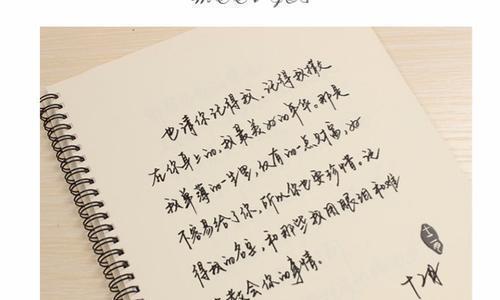 也请你记得我、记得我撒
在你身上的,我最美好的年华。那是
我单薄的一生里,仅有的一点财富,好
不容易给了你,所以你也要珍惜。记
得我的名字,和那些我用眼泪和难
教会你的事情。
十二月
十二月